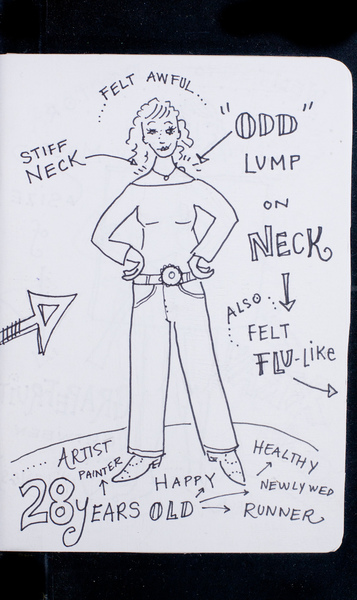 FELT AWFUL
STIFF
NECK
"ODD"
LUMP
ON
NECK
ALSO
FELT
FLU-LIKE
ARTIST
PAINTER
28 YEARS OLD
HAPPY
HEALTHY
NEWLYWED
RUNNER